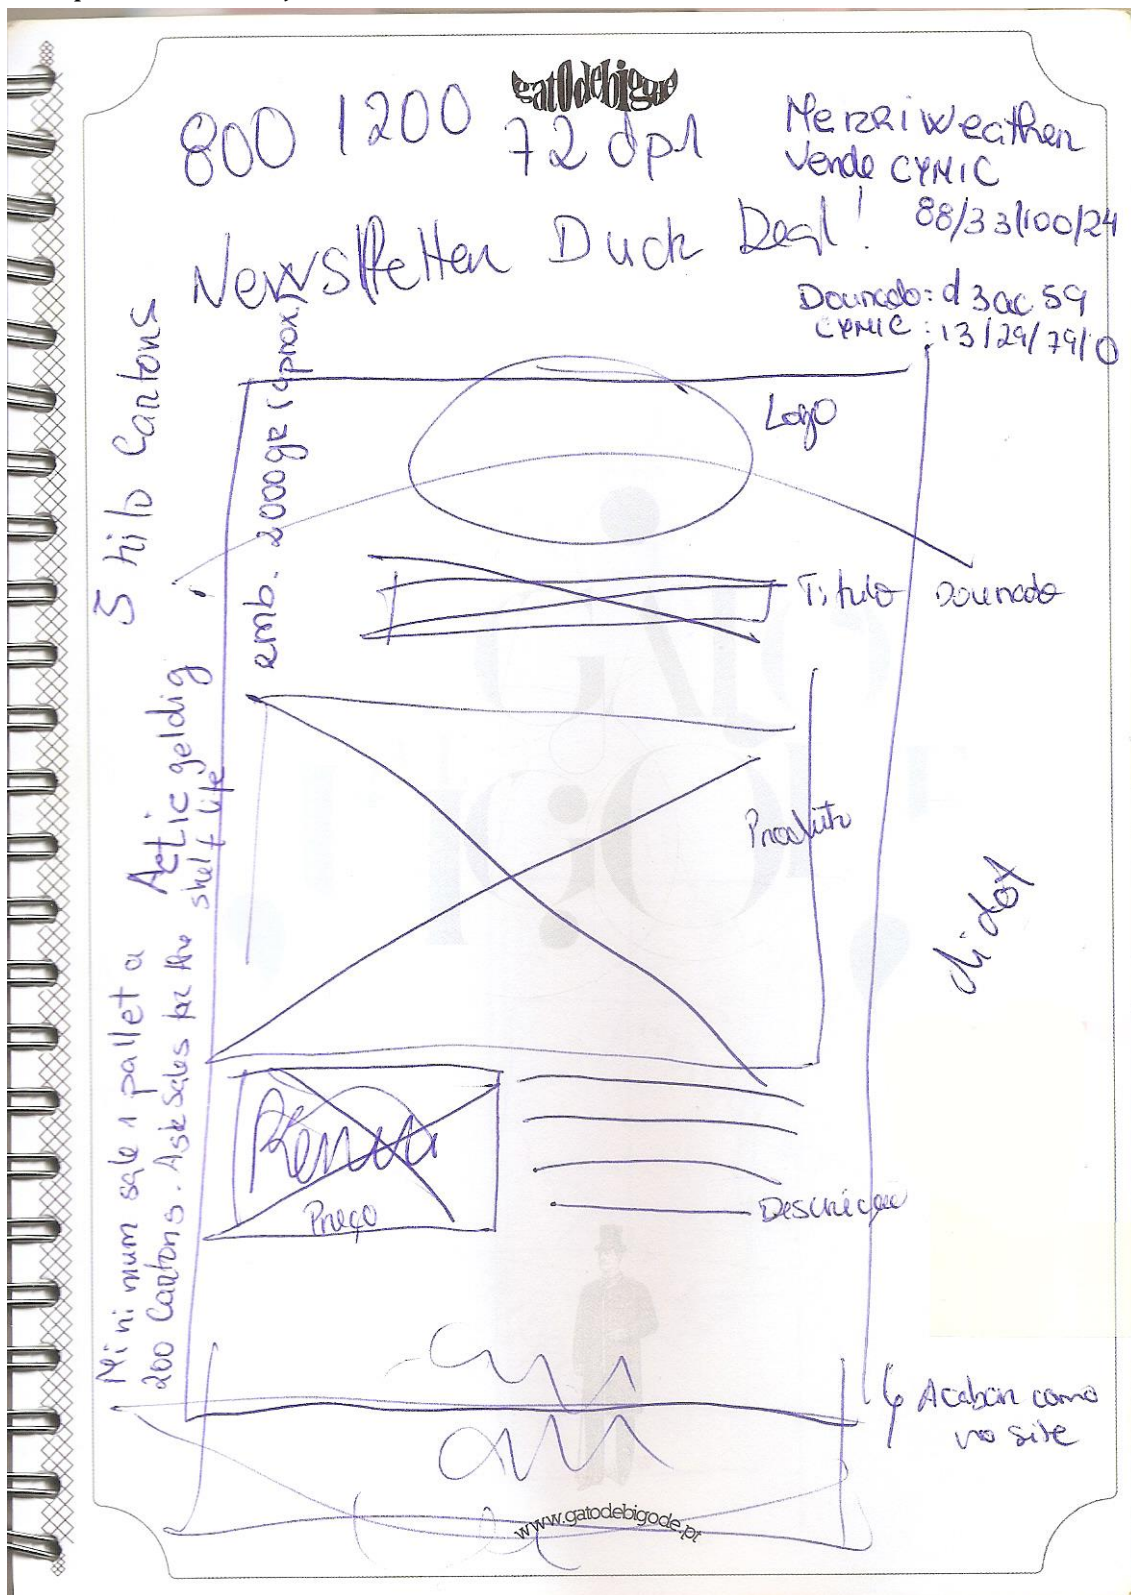 gatOdebigode
800 1200 72 dpi
Merriweather
Verde CYMIC
88/33/100/24
Newsletter Duck Deal!
Dourado: d3ac59
CYMIC: 13/29/79/0
5 kilo Cartons
emb. 2000gr (aprox.)
Logo
Titulo
Dourado
Actic geldig
Produto
didot
Minimum sale 1 pallet a
200 Cartons. Ask sales for the shelf life
Preço
Descrição
Acabar como
no site
www.gatodebigode.pt